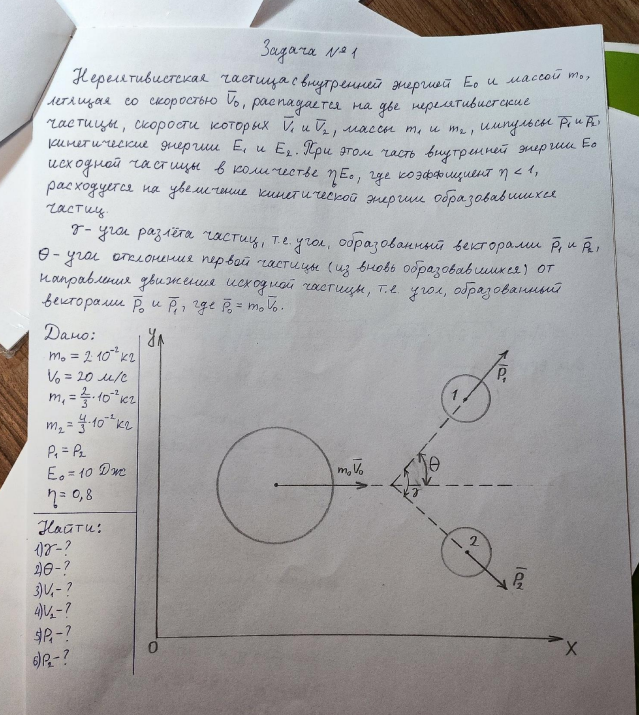 Задача №1
Нерелятивистская частица с внутренней энергией E₀ и массой m₀,
летящая со скоростью V̅₀, распадается на две нерелятивистские
частицы, скорости которых V̅₁ и V̅₂, массы m₁ и m₂, импульсы P̅₁ и P̅₂,
кинетические энергии E₁ и E₂. При этом часть внутренней энергии E₀
исходной частицы в количестве ηE₀, где коэффициент η < 1,
расходуется на увеличение кинетической энергии образовавшихся
частиц.
γ - угол разлёта частиц, т.е. угол, образованный векторами P̅₁ и P̅₂,
θ - угол отклонения первой частицы (из вновь образовавшихся) от
направления движения исходной частицы, т.е. угол, образованный
векторами P̅₀ и P̅₁, где P̅₀ = m₀V̅₀.
Дано:
m₀ = 2·10⁻² кг
V₀ = 20 м/с
m₁ = 2/3·10⁻² кг
m₂ = 4/3·10⁻² кг
P₁ = P₂
E₀ = 10 Дж
η = 0,8
Найти:
1) γ - ?
2) θ - ?
3) V₁ - ?
4) V₂ - ?
5) P₁ - ?
6) P₂ - ?
y
1
P̅₁
m₀V̅₀
θ
γ
2
P̅₂
O
X